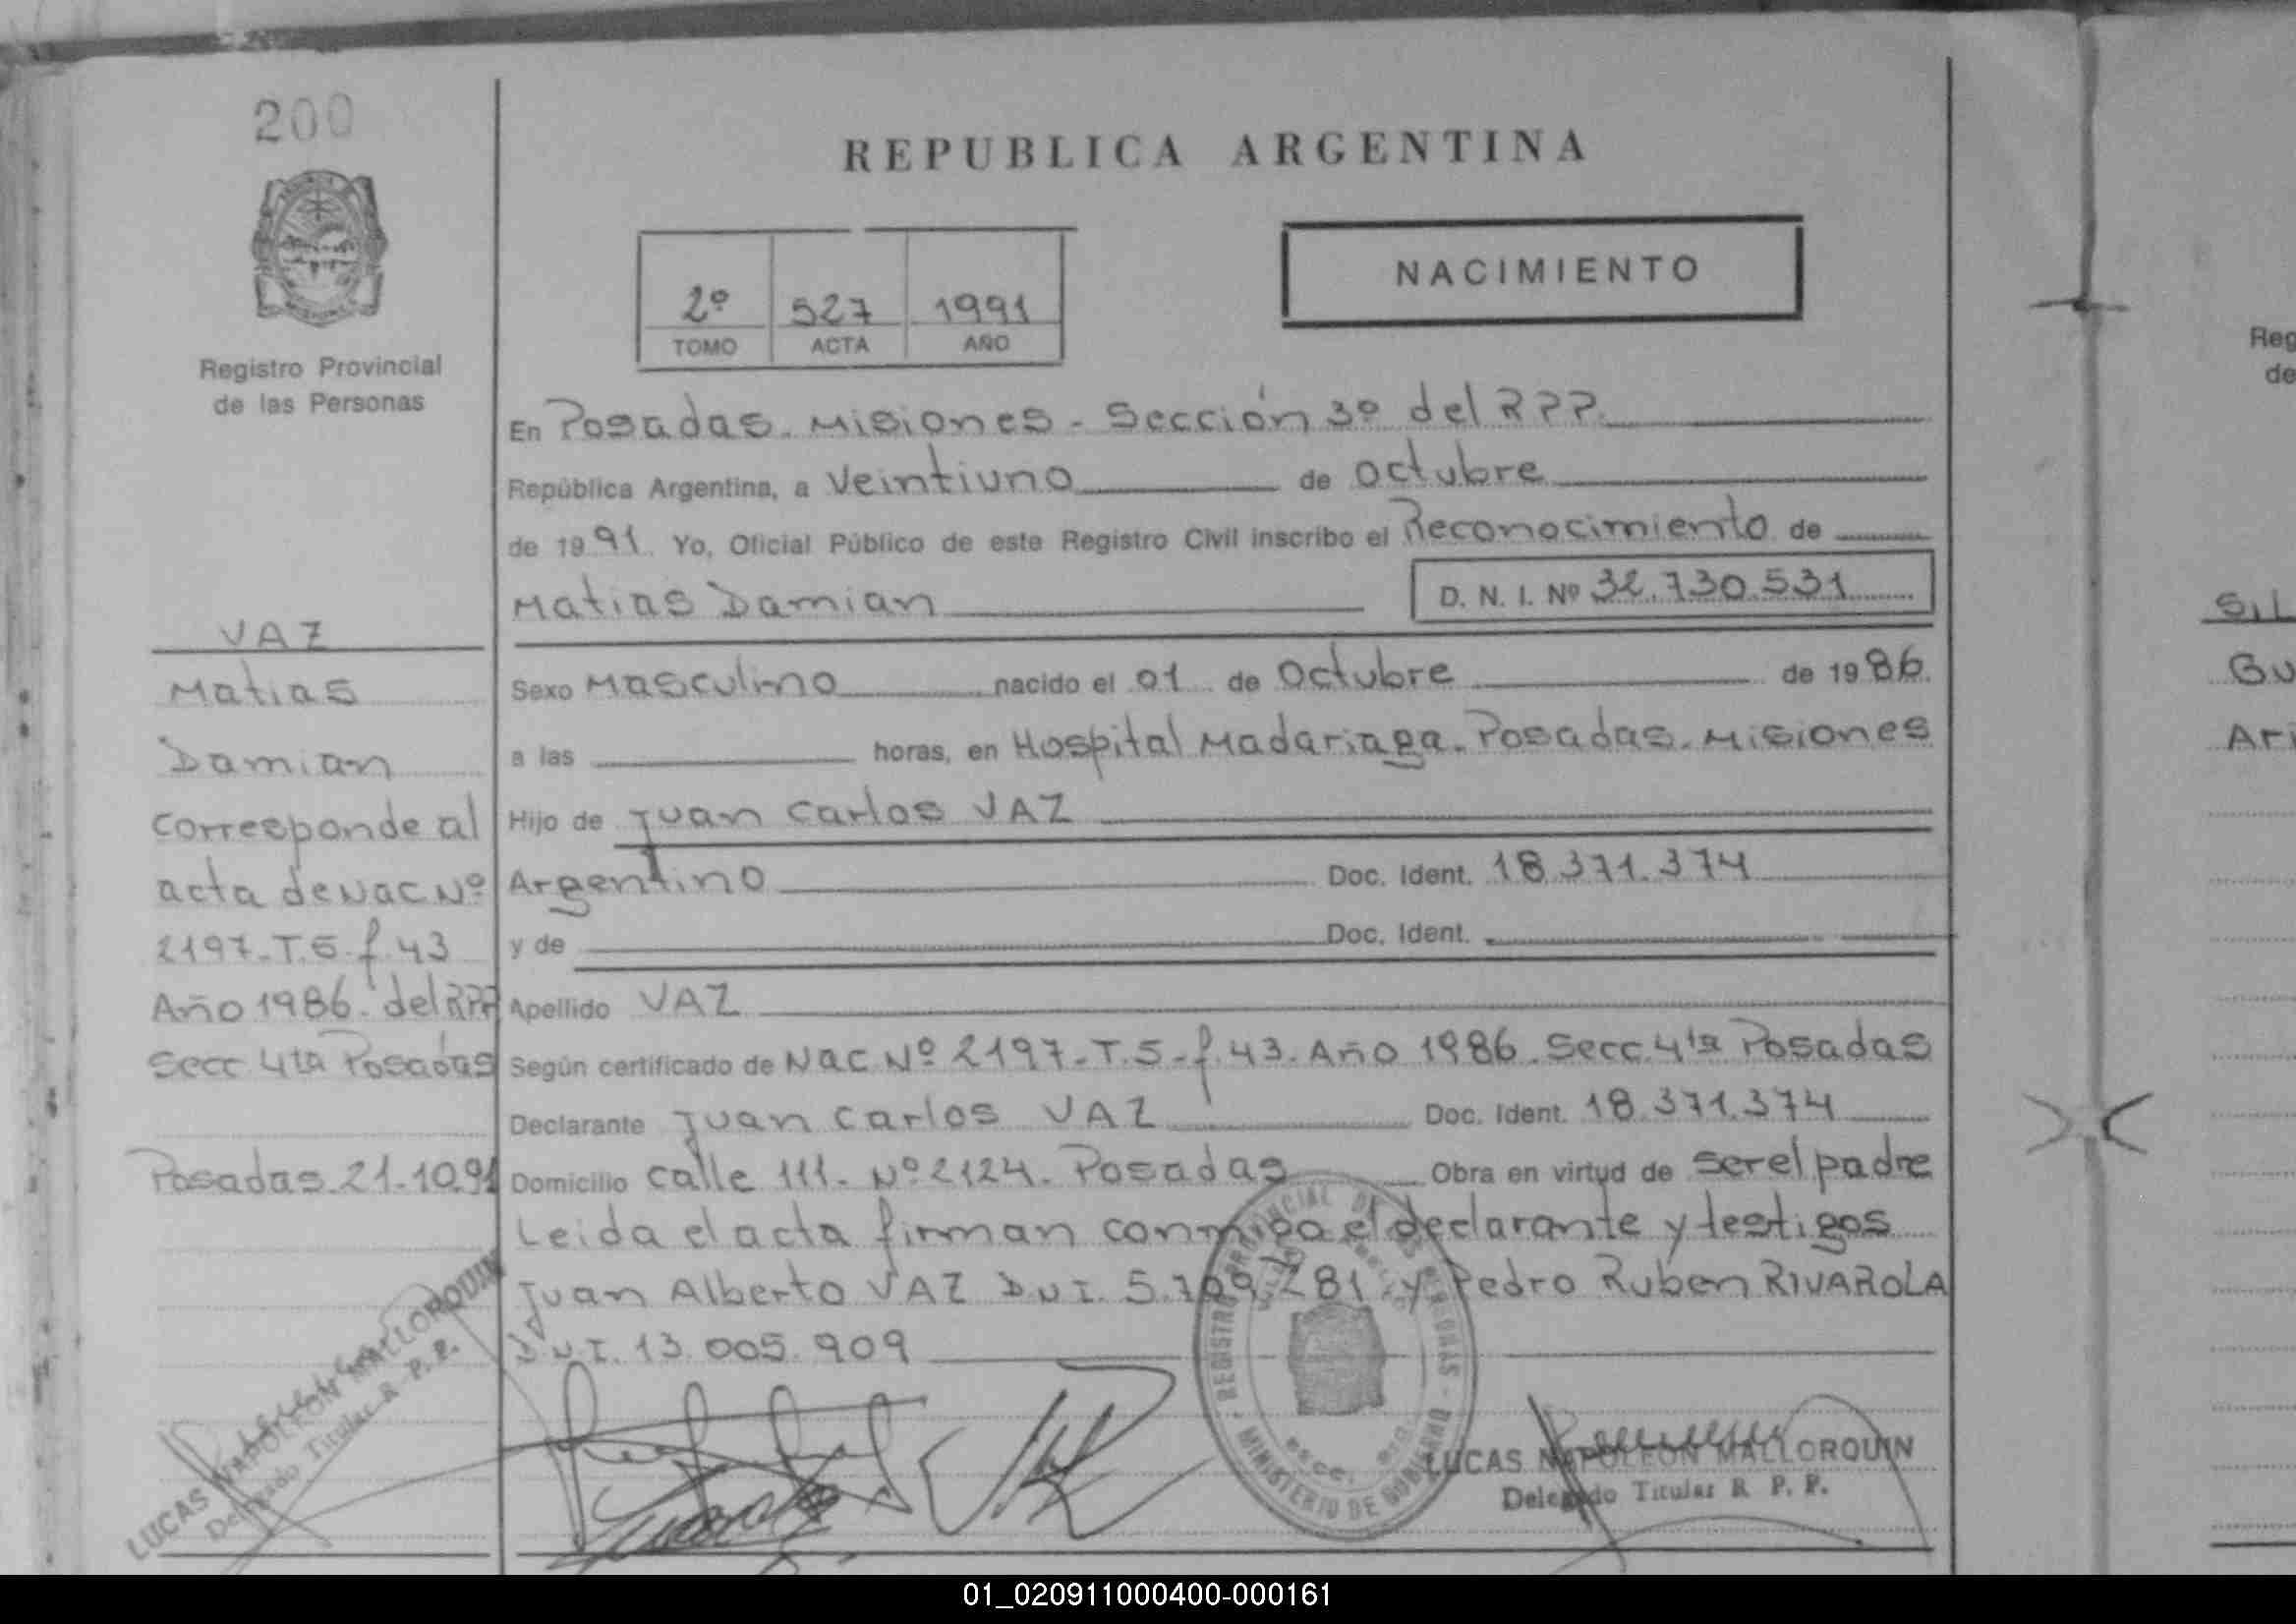 200
Registro Provincial
de las Personas
VAZ
Matias
Damian
corresponde al
acta de Nac Nº
2197-T.5-f.43
Año 1986. del RPP
Secc 4ta Posadas
Posadas.21-10.91
LUCAS NAPOLEON MALLORQUIN
Delegado Titular R. P. P.
REPUBLICA ARGENTINA
2º 527 1991
TOMO ACTA AÑO
NACIMIENTO
En Posadas. Misiones - Sección 3º del RPP.
República Argentina, a Veintiuno de Octubre
de 1991. Yo, Oficial Público de este Registro Civil inscribo el Reconocimiento de
Matias Damian D. N. I. Nº 32.730.531
Sexo Masculino nacido el 01 de Octubre de 1986.
a las horas, en Hospital Madariaga. Posadas. Misiones
Hijo de Juan Carlos VAZ
Argentino Doc. Ident. 18.371.374
y de Doc. Ident.
Apellido VAZ
Según certificado de Nac Nº 2197-T.5-f.43. Año 1986. Secc. 4ta Posadas
Declarante Juan Carlos VAZ Doc. Ident. 18.371.374
Domicilio calle 111. Nº 2124. Posadas Obra en virtud de ser el padre
Leida el acta firman conmigo el declarante y testigos
Juan Alberto VAZ DNI. 5.709.281 y Pedro Ruben RIVAROLA
DNI. 13.005.909
REGISTRO PROVINCIAL DE LAS PERSONAS - MINISTERIO DE GOBIERNO
secc. 3ra.
LUCAS NAPOLEON MALLORQUIN
Delegado Titular R. P. P.
Reg
de
SIL
Gu
Ari
01_020911000400-000161